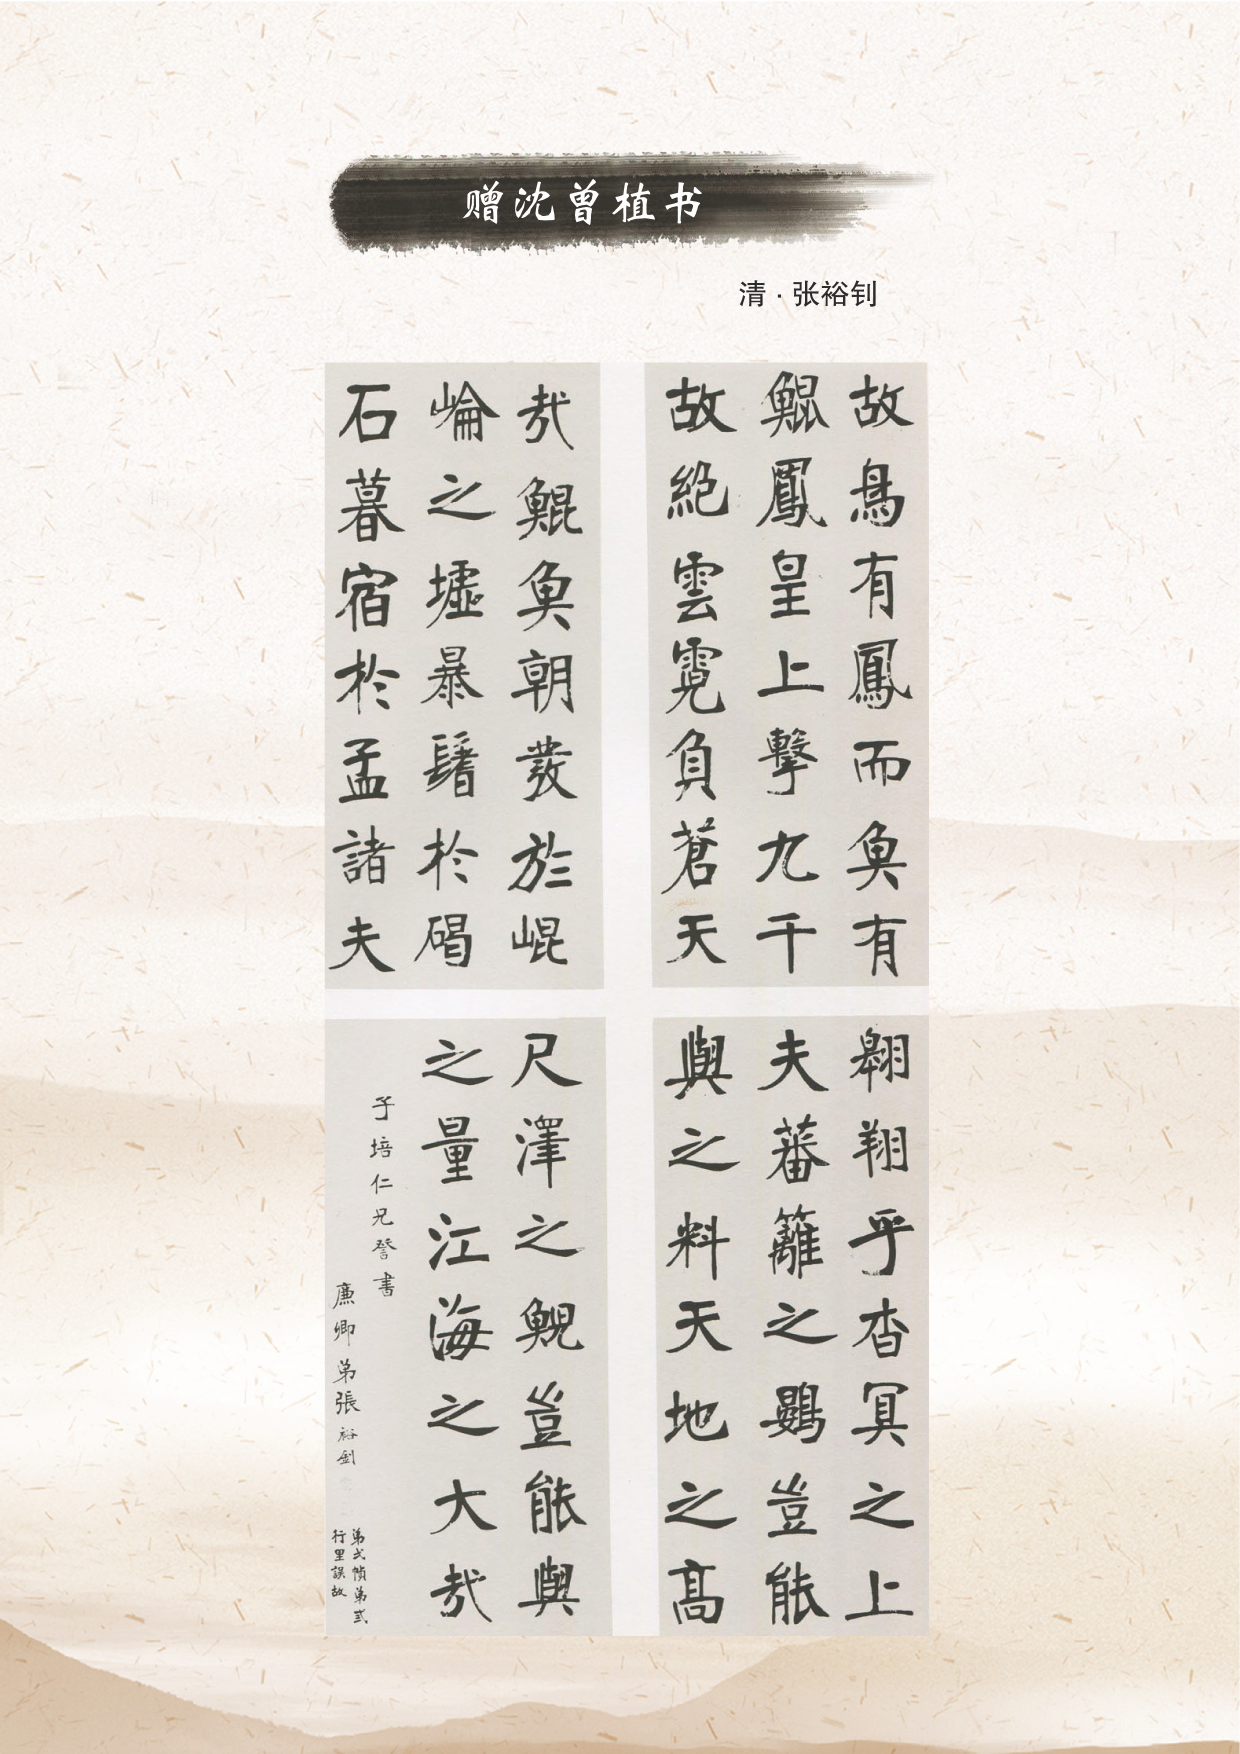 赠沈曾植书
清·张裕钊
故鳥有鳳而魚有
鯤鳳皇上擊九千
故絕雲霓負蒼天
翱翔乎杳冥之上
夫蕃籬之鷃豈能
與之料天地之高
哉鯤魚朝發於崐
崘之墟暴鬐於碣
石暮宿於孟諸夫
尺澤之鯢豈能與
之量江海之大哉
子培仁兄詧書
廉卿弟張裕釗
弟弍幀弟弍
行里誤故